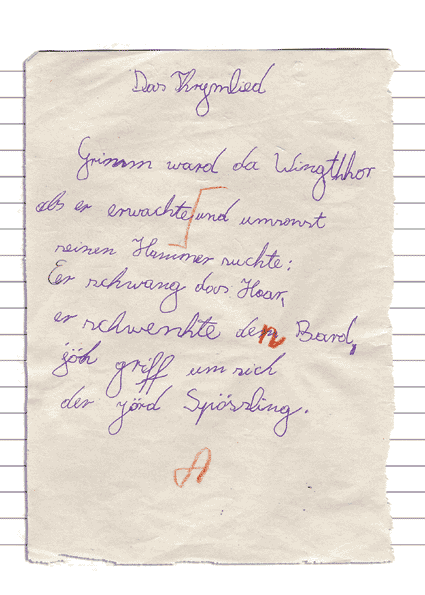 Das Thrymlied
Grimm ward da Wingthhor
als er erwachte und umsonst
seinen Hammer suchte:
Er schwang das Haar,
er schwenkte den Bard,
jöh griff um sich
der jörd Spössling.
A